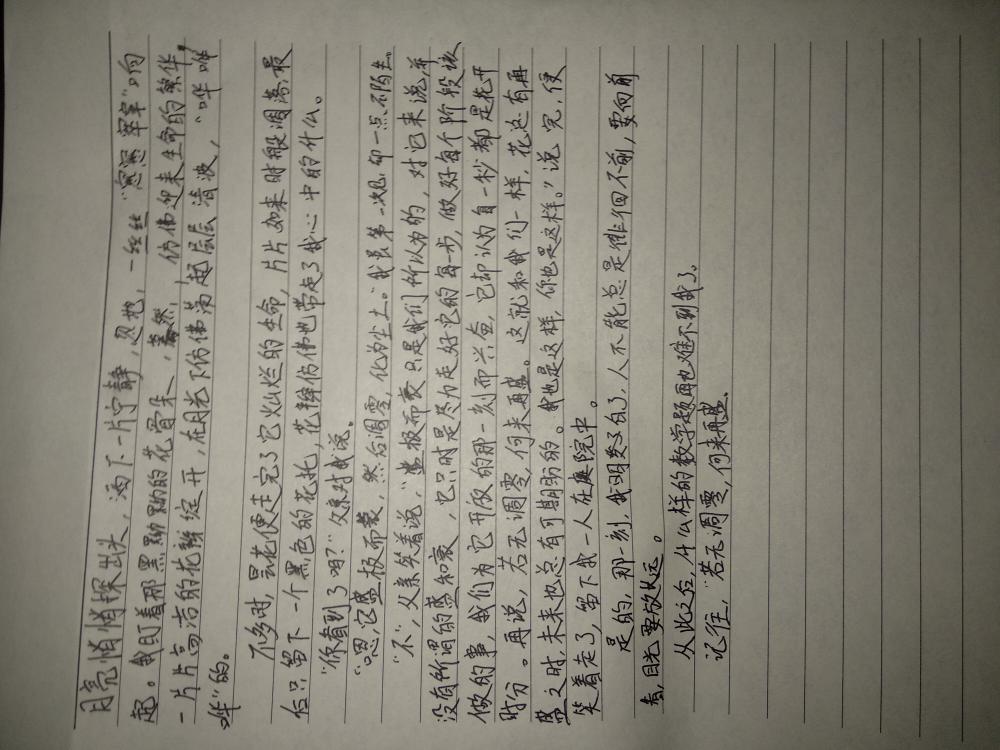 月亮悄悄探出头，洒下一片宁静，忽地，一丝丝“窸窸窣窣”响
起。我盯着那黑黝黝的花骨朵，蓦然，仿佛迎来生命的繁华，
一片片高洁的花瓣绽开，在月光下仿佛荡起层层清波，“哗哗
哗”的。
不多时，昙花便走完了它灿烂的生命，片片如来时般凋落，最
后只留下一个黑色的花托，花瓣仿佛也带走了我心中的什么。
“你看到了吗？”父亲对我说。
“嗯，它盛极而衰，然后凋零，化为尘土。”我是第一次见，却一点不陌生。
“不”，父亲笑着说，“盛极而衰只是我们所以为的，对它来说，并
没有所谓的盛和衰，它只时是尽力走好它的每一步，做好每个阶段该
做的事，我们为它开放的那一刻而兴奋，它却认为每一秒都是花开
时分。再说，若无凋零，何来再盛。这就和我们一样，花还有再
盛之时，未来也总有可期盼的。我也是这样，你也是这样。”说完，便
笑着走了，留下我一人在庭院中。
是的，那一刻，我明白了，人不能总是徘徊不前，要向前
看，目光要放长远。
从此之后，什么样的数学题再也难不到我了。
记住，“若无凋零，何来再盛。